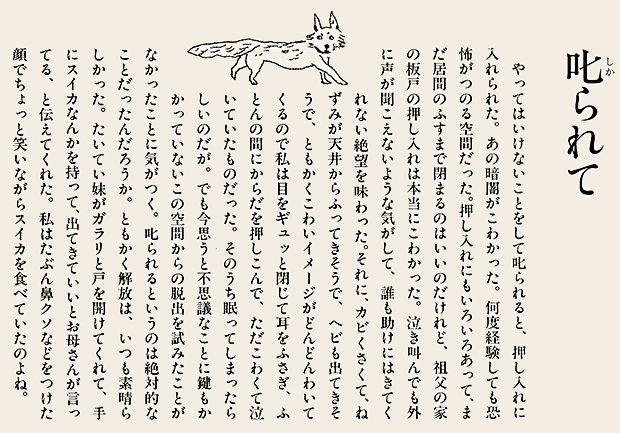 叱られて
しか
やってはいけないことをして叱られると、押し入れに
入れられた。あの暗闇がこわかった。何度経験しても恐
怖がつのる空間だった。押し入れにもいろいろあって、ま
だ居間のふすまで閉まるのはいいのだけれど、祖父の家
の板戸の押し入れは本当にこわかった。泣き叫んでも外
に声が聞こえないような気がして、誰も助けにはきてく
れない絶望を味わった。それに、カビくさくて、ね
ずみが天井からふってきそうで、ヘビも出てきそ
うで、ともかくこわいイメージがどんどんわいて
くるので私は目をギュッと閉じて耳をふさぎ、ふ
とんの間にからだを押しこんで、ただこわくて泣
いていたものだった。そのうち眠ってしまったら
しいのだが。でも今思うと不思議なことに鍵もか
かっていないこの空間からの脱出を試みたことが
なかったことに気がつく。叱られるというのは絶対的な
ことだったんだろうか。ともかく解放は、いつも素晴ら
しかった。たいてい妹がガラリと戸を開けてくれて、手
にスイカなんかを持って、出てきていいとお母さんが言っ
てる、と伝えてくれた。私はたぶん鼻クソなどをつけた
顔でちょっと笑いながらスイカを食べていたのよね。